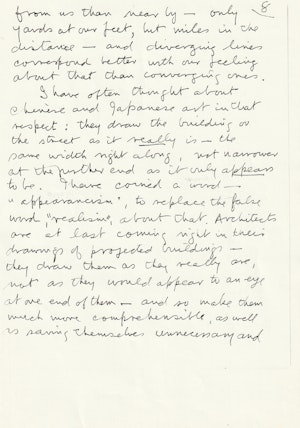 8
from us than near by — only
yards at our feet, but miles in the
distance — and diverging lines
correspond better with our feeling
about that than converging ones.
I have often thought about
Chinese and Japanese art in that
respect: they draw the building or
the street as it really is — the
same width right along, not narrower
at the further end as it only appears
to be. I have coined a word —
"appearancism", to replace the false
word, "realism", about that. Architects
are at last coming right in their
drawings of projected buildings —
they draw them as they really are,
not as they would appear to an eye
at one end of them — and so make them
much more comprehensible, as well
as saving themselves unnecessary and